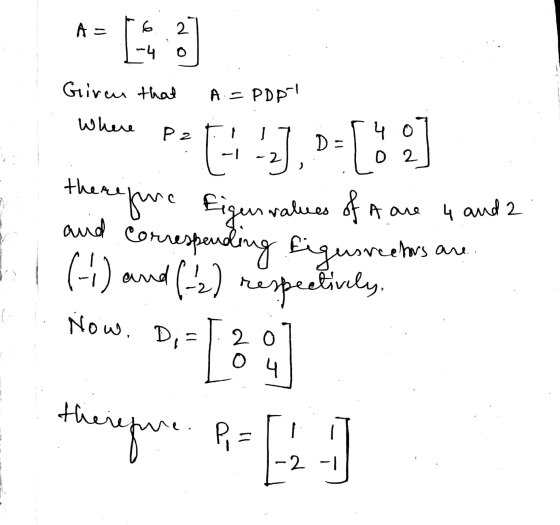 A = [ 6 2
-4 0 ]
Given that A = PDP⁻¹
Where P = [ 1 1
-1 -2 ], D = [ 4 0
0 2 ]
therefore Eigenvalues of A are 4 and 2
and corresponding Eigenvectors are
(1
-1) and (1
-2) respectively.
Now, D₁ = [ 2 0
0 4 ]
therefore. P₁ = [ 1 1
-2 -1 ]